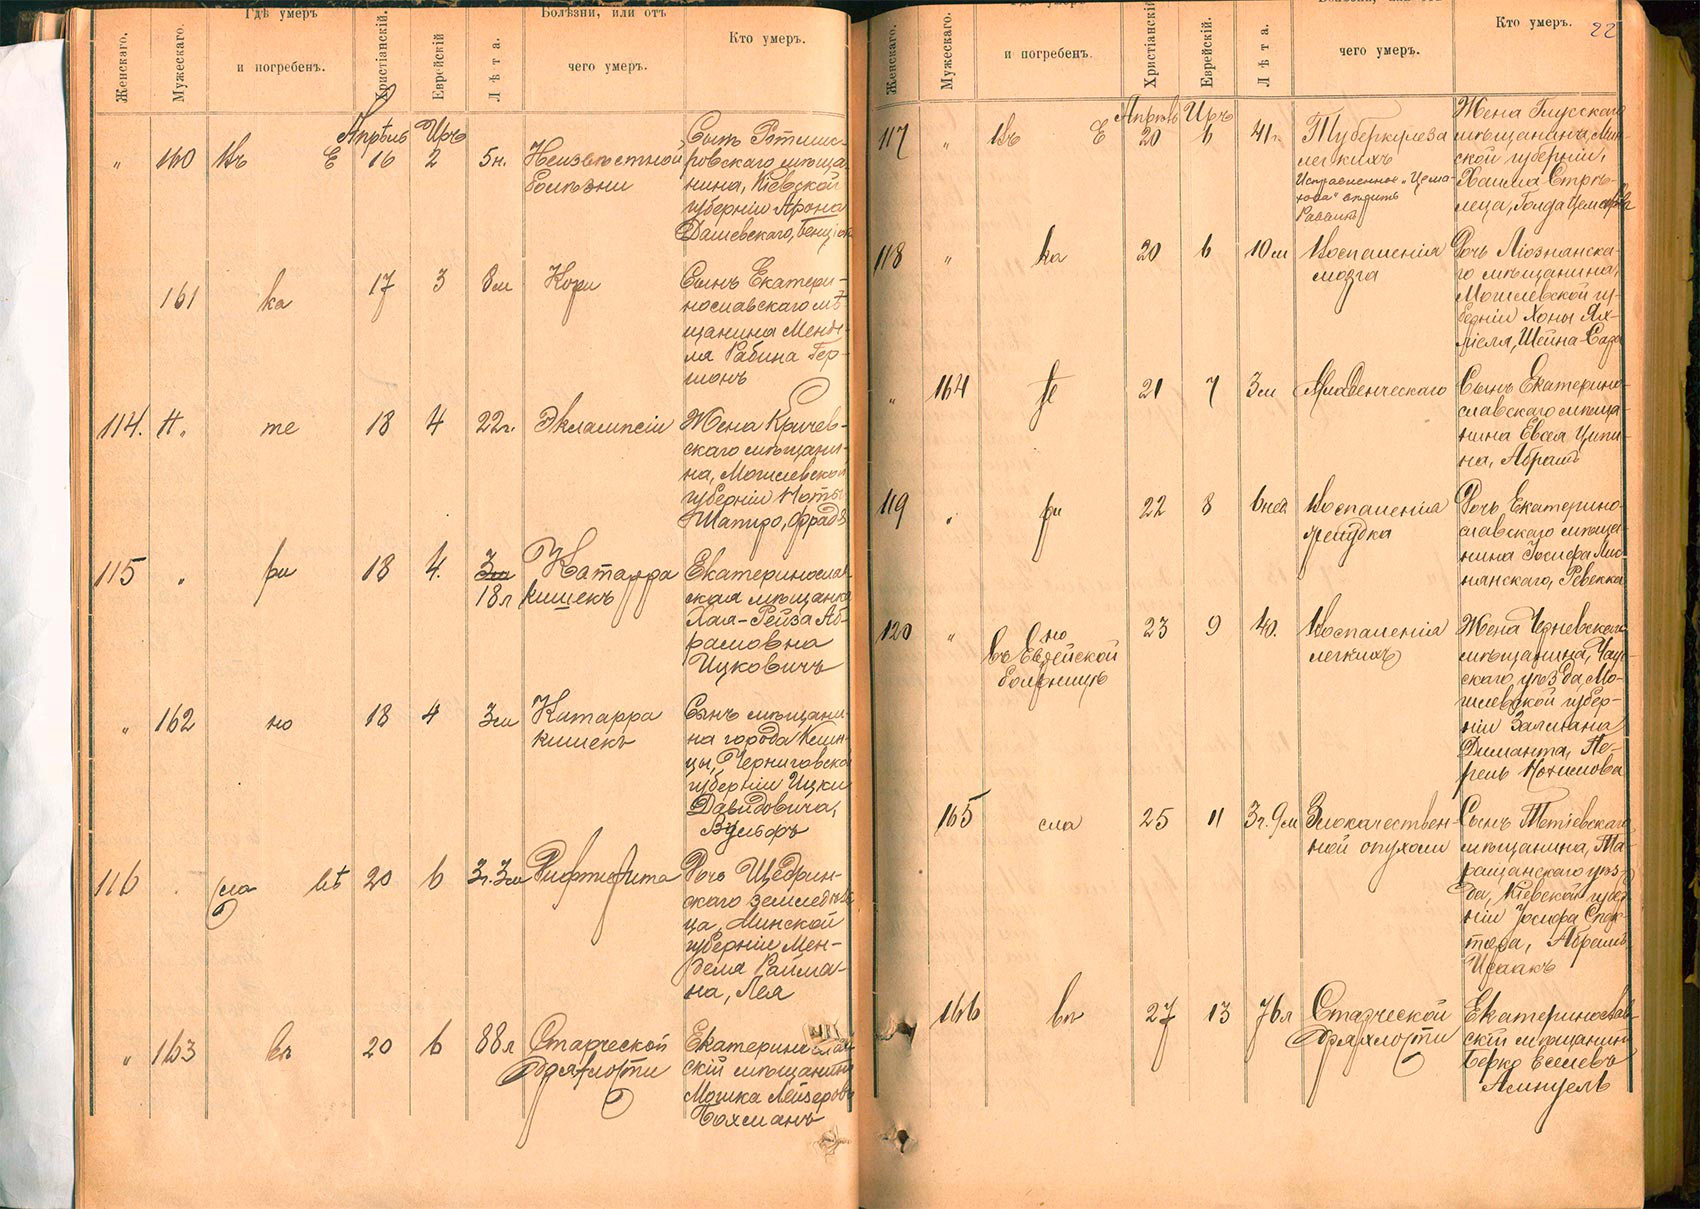 Женскаго.
Мужескаго.
Гдѣ умеръ
и погребенъ.
Христіанскій.
Еврейскій
Лѣта.
Болѣзни, или отъ
чего умеръ.
Кто умеръ.
Апрѣль Иръ
„ 160 Въ Е 16 2 5н. Неизвѣстной
болѣзни
Сынъ
ровскаго мѣща-
нина, Кіевской
губерніи Арона
Дашевскаго, Бенціонъ
161 ка 17 3 8м Кори
Сынъ Екатери-
нославскаго мѣ-
щанина Менде-
ля Рабина Гер-
шонъ
114. Н„ те 18 4 22г. Эклампсіи
Жена Кричев-
скаго мѣщани-
на, Могилевской
губерніиНоты
Шапиро, Фрада
115 „ ри 18 4. 3м
18л
Катарра
кишекъ
Екатеринослав-
ская мѣщанка
Хая-Рейза Аб-
рамовна
Ицковичъ
„ 162 но 18 4 3м Катарра
кишекъ
Сынъ мѣщани-
на города
цы, Черниговской
губерніи Ицки
Давидовича,
Вульфъ
116 сла вѣ 20 6 3г.3м Дифтерита
Дочь Щедрин-
скаго земледѣль-
ца, Минской
губерніи Мен-
деля Райма-
на, Лея
„ 163 въ 20 6 88л Старческой
дряхлости
Екатеринослав-
скій мѣщанинъ
Мошка Лейзеровъ
Бохманъ
22
Женскаго.
Мужескаго.
и погребенъ.
Христіанскій
Еврейскій.
Лѣта
чего умеръ.
Кто умеръ.
Апрѣль Иръ
117 „ Въ Е 20 6 41г. Туберкулеза
легкихъ
Исправленное „Цема-
хова" вѣрить
Раввинъ
Жена Глусскаго
мѣщанина, Мин-
ской губерніи,
Хаима Стрѣ-
леца, Голда Цемахова
118 „ ка 20 6 10м Воспаленія
мозга
Дочь Ліознянска-
го мѣщанина,
Могилевской гу-
берніи Хоны Ях-
ніеля, Шейна-Сара
„ 164 те 21 7 3м Младенческаго
Сынъ Екатерино-
славскаго мѣща-
нина Евсея Ципи-
на, Абрамъ
119 „ ри 22 8 6нед. Воспаленія
желудка
Дочь Екатерино-
славскаго мѣща-
нина Іосифа Лис-
нянскаго, Ревекка
120 „ но
въ Еврейской
больницѣ
23 9 40. Воспаленія
легкихъ
Жена Черневскаго
мѣщанина, Чаус-
скаго уѣзда, Мо-
гилевской губер-
ніи Залмана
Диманта,
165 сла 25 11 3г.9м Злокачествен-
ной опухоли
Сынъ Тетіевскаго
мѣщанина, Та-
ращанскаго уѣз-
да, Кіевской губер-
ніи Іосифа Спек-
тора, Абрамъ-
Исаакъ
166 въ 27 13 76л Старческой
дряхлости
Екатеринослав-
скій мѣщанинъ
Берко